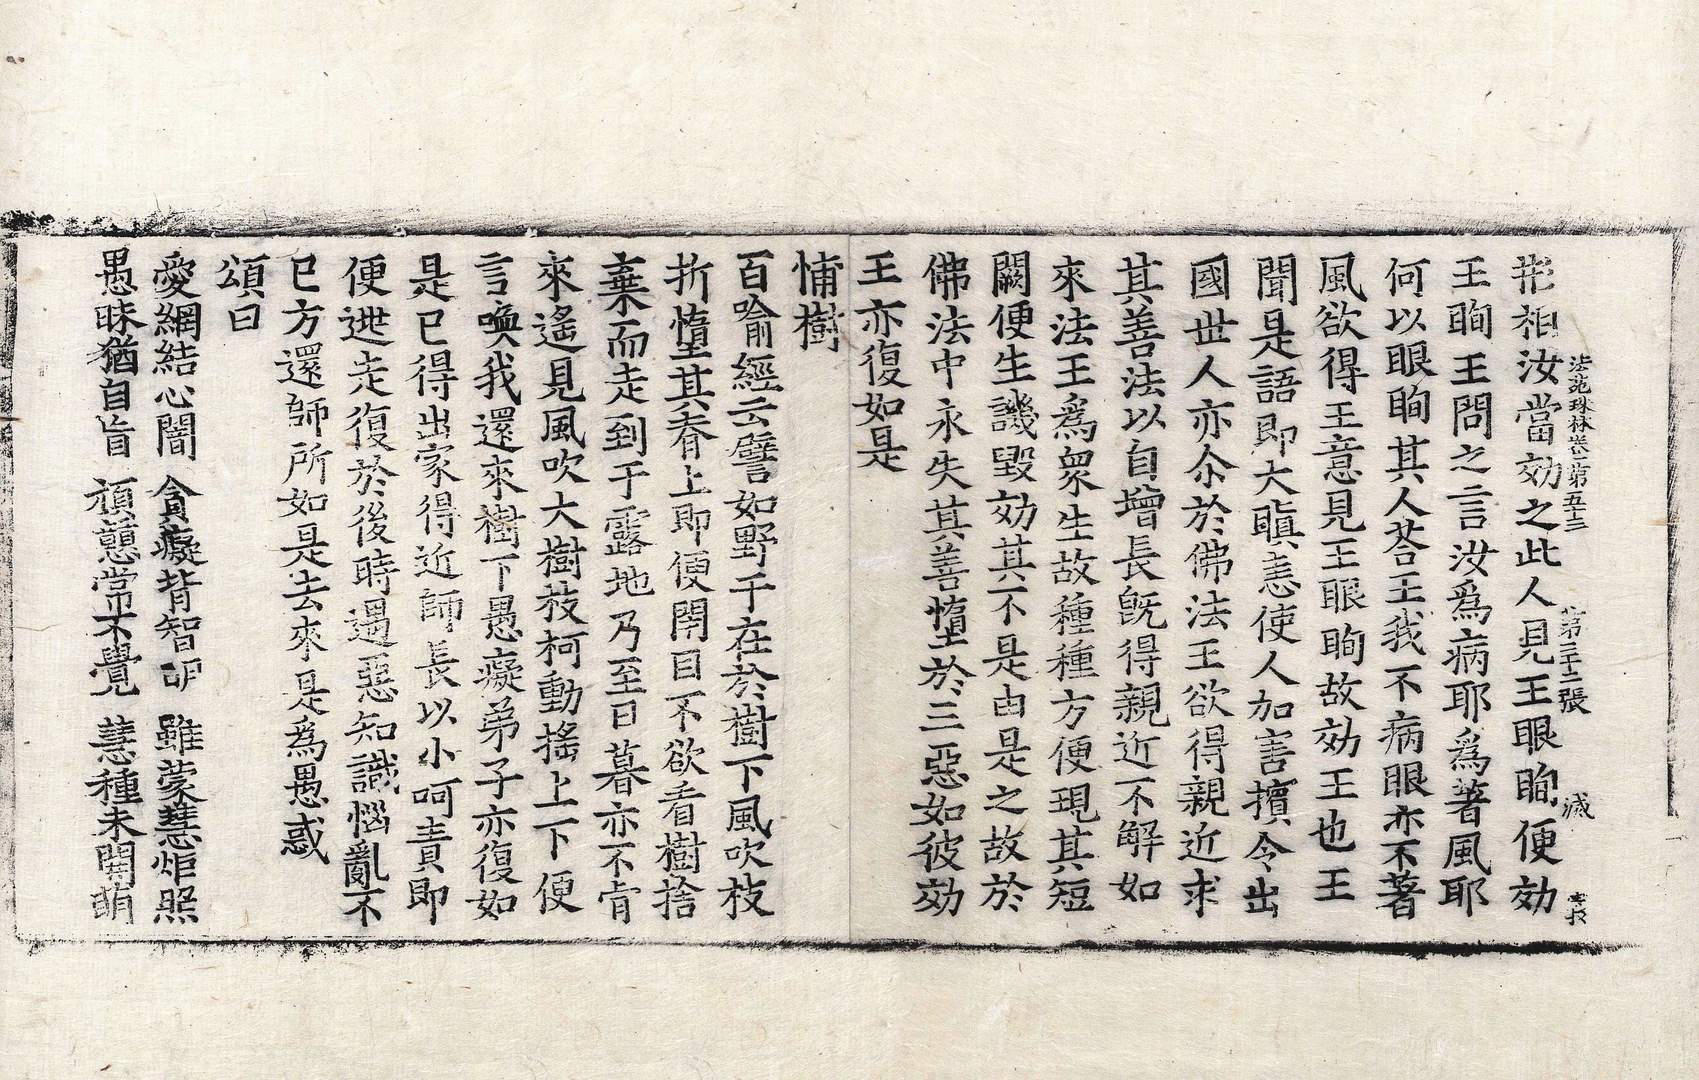 形相汝當効之此人見王眼瞤便効
法苑珠林卷第五十三 第三十二張 滅
王瞤王問之言汝為病耶為著風耶
何以眼瞤其人荅王我不病眼亦不著
風欲得王意見王眼瞤故効王也王
聞是語即大瞋恚使人加害擯令出
國世人亦尒於佛法王欲得親近求
其善法以自增長旣得親近不解如
來法王為衆生故種種方便現其短
闕便生譏毀効其不是由是之故於
佛法中永失其善墮於三惡如彼効
王亦復如是
怖樹
百喻經云譬如野干在於樹下風吹枝
折墮其脊上即便閉目不欲看樹捨
棄而走到于露地乃至日暮亦不肯
來遙見風吹大樹枝柯動搖上下便
言喚我還來樹下愚癡弟子亦復如
是已得出家得近師長以小呵責即
便逃走復於後時遇惡知識惱亂不
已方還師所如是去來是為愚惑
頌曰
愛網結心闇 貪癡背智明 雖蒙慧炬照
愚昧猶自盲 頑戇常不覺 慧種未開萌